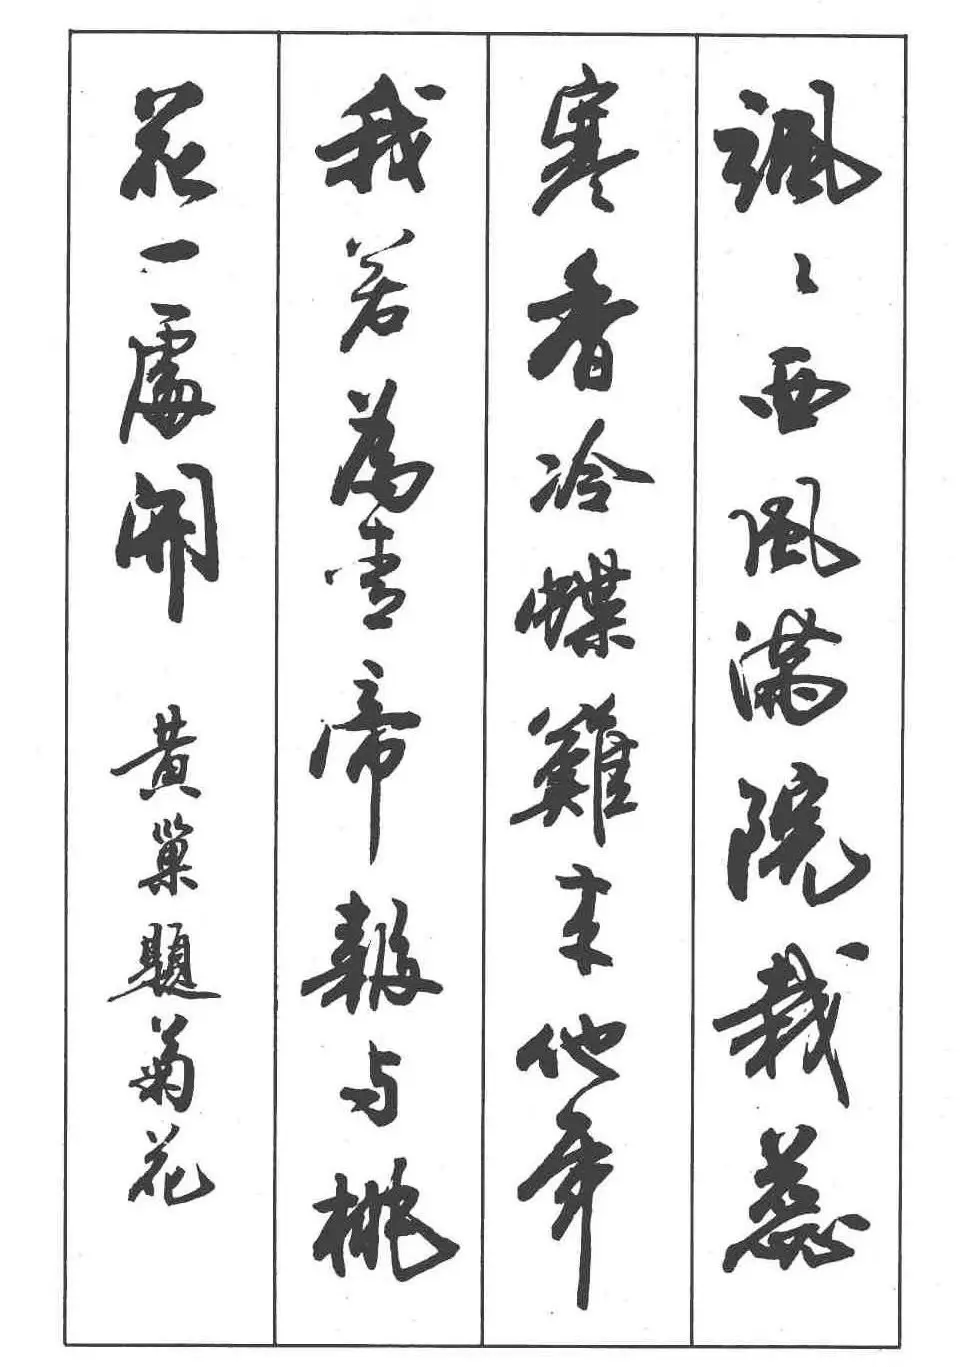 颯〻西風滿院栽蕊
寒香冷蝶難来他年
我若為青帝報与桃
花一處開 黄巢題菊花